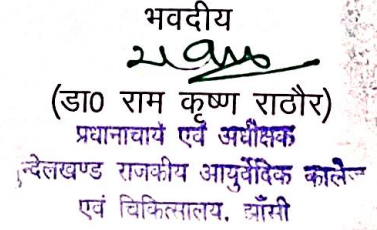 भवदीय
(डा0 राम कृष्ण राठौर)
प्रधानाचार्य एवं अधीक्षक
न्देलखण्ड राजकीय आयुर्वेदिक कालेज
एवं चिकित्सालय, झाँसी